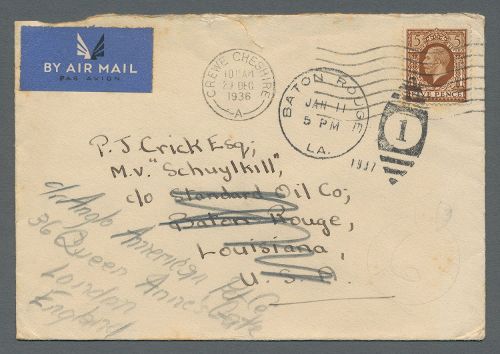 BY AIR MAIL
PAR AVION
CREWE CHESHIRE
29 DEC
1936
A
BATON ROUGE
JAN 11
5 PM
LA.
1937
1
5 5
FIVE PENCE
P. J Crick Esq;
M.V. "Schuylkill",
c/o Standard Oil Co;
Baton Rouge,
Louisiana,
U.S.A.
c/o Anglo American Co
36 Queen Annes Gate
London
England